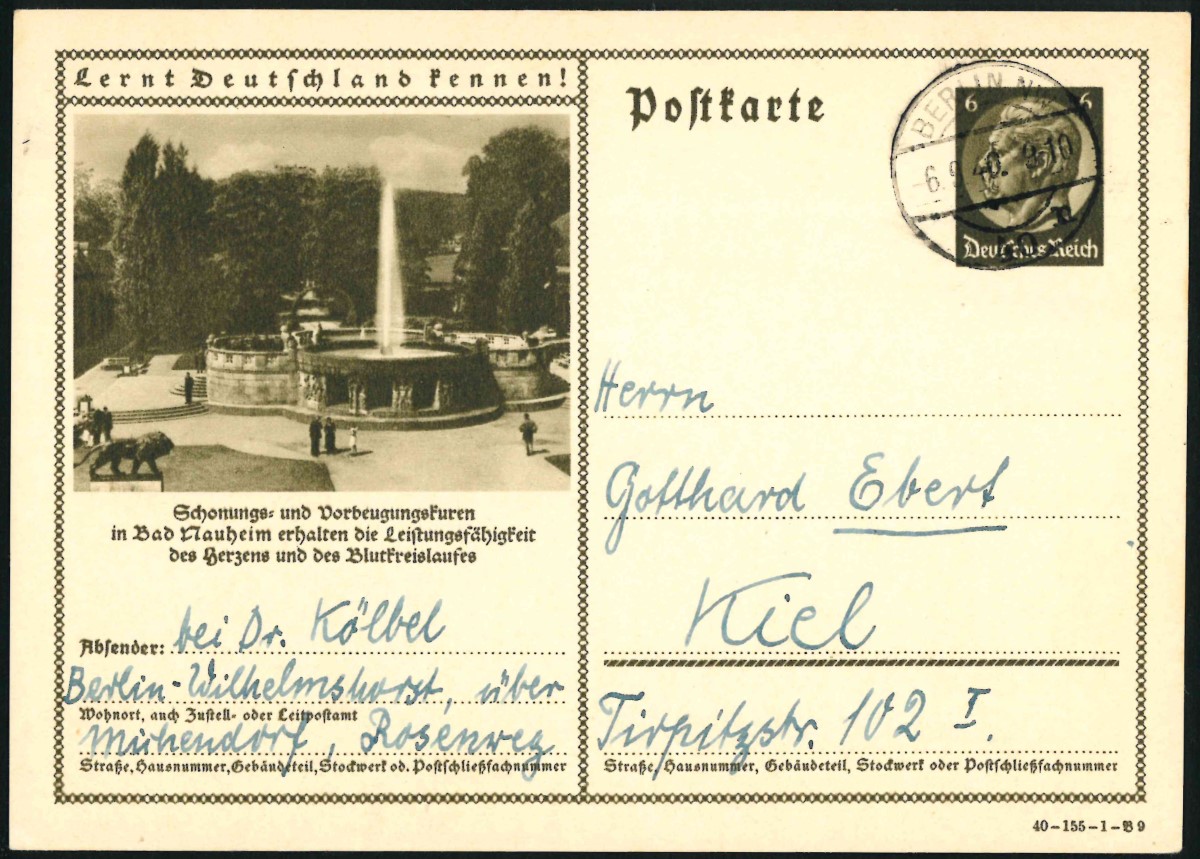 Lernt Deutschland kennen!
Schonungs- und Vorbeugungskuren
in Bad Nauheim erhalten die Leistungsfähigkeit
des Herzens und des Blutkreislaufes
Absender: bei Dr. Kölbel
Berlin-Wilhelmshorst, über
Wohnort, auch Zustell- oder Leitpostamt
Michendorf, Rosenweg
Straße, Hausnummer, Gebäudeteil, Stockwerk od. Postschließfachnummer
Postkarte
6 6
Deutsches Reich
BERLIN NW
40
Herrn
Gotthard Ebert
Kiel
Tirpitzstr. 102 I.
Straße, Hausnummer, Gebäudeteil, Stockwerk oder Postschließfachnummer
40-155-1-B 9